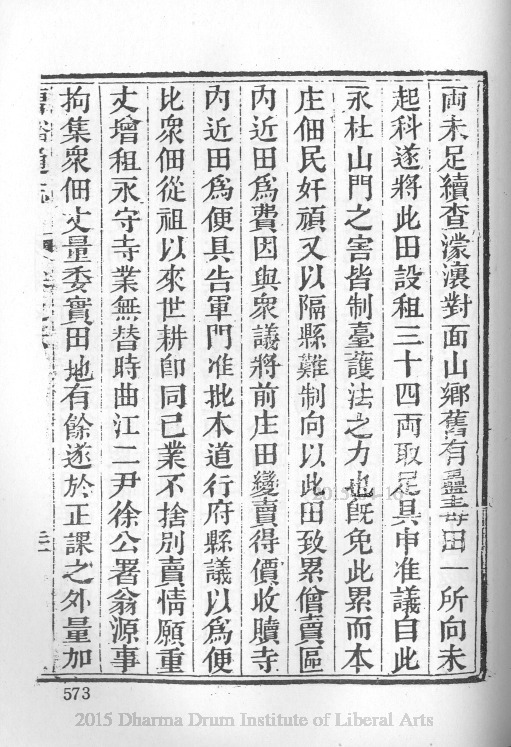 両未足續查濛瀼對面山鄉舊有蠱毒田一所向未
起科遂將此田設租三十四両取足具申准議自此
永杜山門之害皆制臺護法之力也旣免此累而本
庄佃民奸頑又以隔縣難制向以此田致累僧賣區
内近田爲費因與衆議將前庄田變賣得價收贖寺
内近田爲便具告軍門准批木道行府縣議以爲便
比衆佃從祖以來世耕卽同己業不捨別賣情願重
丈增租永守寺業無替時曲江二尹徐公署翁源事
拘集衆佃丈量委實田地有餘遂於正課之外量加
573
2015 Dharma Drum Institute of Liberal Arts